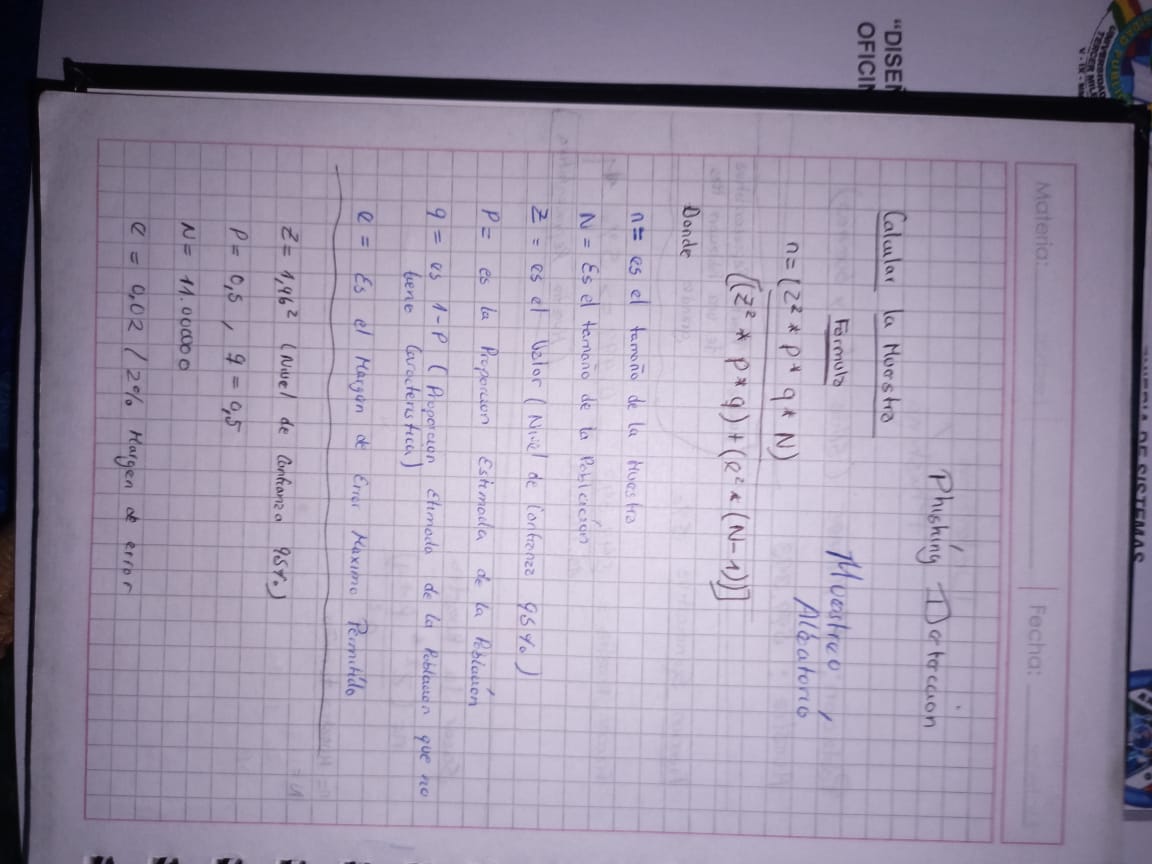 "DISEÑ
OFICIN
Materia:
Fecha:
Phishing Dateccion
Calcular la Muestra
Formula
Muestreo
Aleatorio
n = (Z² * P * q * N)
[(Z² * P * q) + (e² * (N-1))]
Donde
n = es el tamaño de la Muestra
N = Es el tamaño de la Poblacion
Z = es el Valor (Nivel de Confianza 95%)
P = es la Proporcion Estimada de la Población
q = es 1-P (Proporcion Etimada de la Poblacion que no
tiene Caracteristica)
e = Es el Margen de Error Maximo Permitido
Z = 1,96² (Nivel de Confianza 95%)
P = 0,5 , q = 0,5
N = 11.00000
e = 0,02 / 2% Margen de error